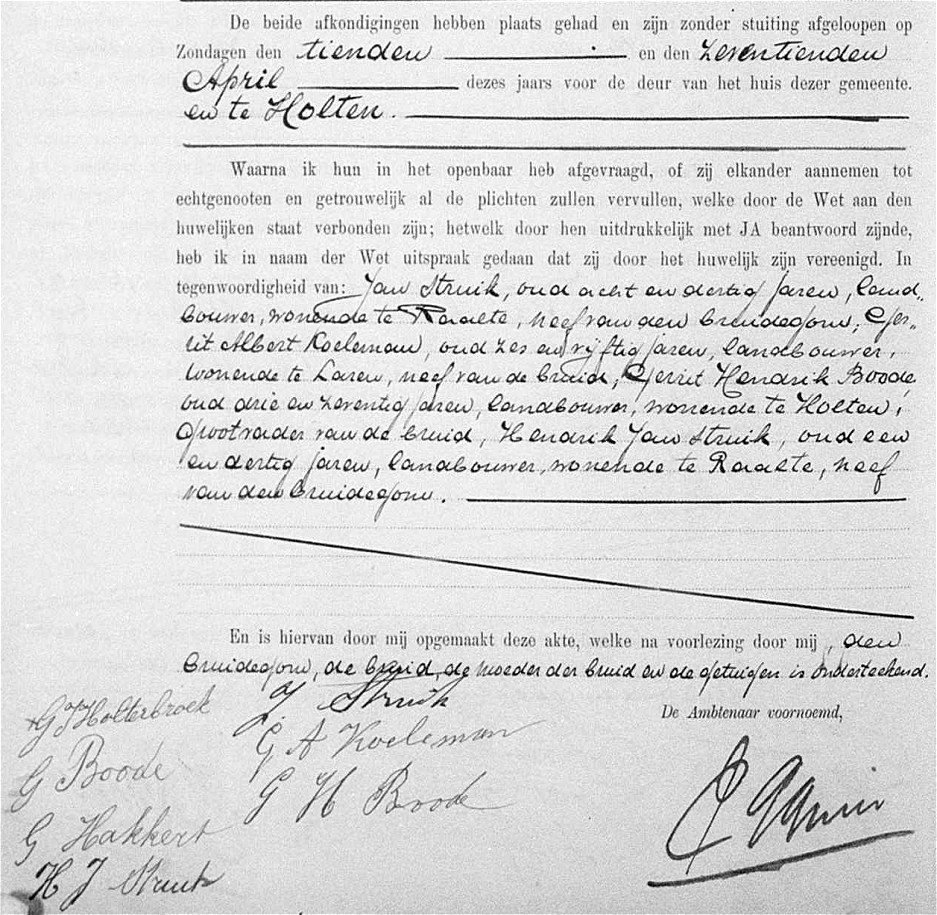 De beide afkondigingen hebben plaats gehad en zijn zonder stuiting afgeloopen op
Zondagen den tienden en den zeventienden
April dezes jaars voor de deur van het huis dezer gemeente.
en te Holten.
Waarna ik hun in het openbaar heb afgevraagd, of zij elkander aannemen tot
echtgenooten en getrouwelijk al de plichten zullen vervullen, welke door de Wet aan den
huwelijken staat verbonden zijn; hetwelk door hen uitdrukkelijk met JA beantwoord zijnde,
heb ik in naam der Wet uitspraak gedaan dat zij door het huwelijk zijn vereenigd. In
tegenwoordigheid van: Jan Struik, oud acht en dertig jaren, land-
bouwer, wonende te Raalte, neef van den bruidegom, Ger-
rit Albert Koeleman, oud zes en vijftig jaren, landbouwer,
wonende te Laren, neef van de bruid, Gerrit Hendrik Boode
oud drie en zeventig jaren, landbouwer, wonende te Holten,
grootvader van de bruid, Hendrik Jan Struik, oud een
en dertig jaren, landbouwer, wonende te Raalte, neef
van den bruidegom.
En is hiervan door mij opgemaakt deze akte, welke na voorlezing door mij, den
bruidegom, de bruid, de moeder der bruid en de getuigen is onderteekend.
GJHolterbroek J Struik De Ambtenaar voornoemd,
G Boode G A Koeleman
G Hakkert G H Boode
H J Struik